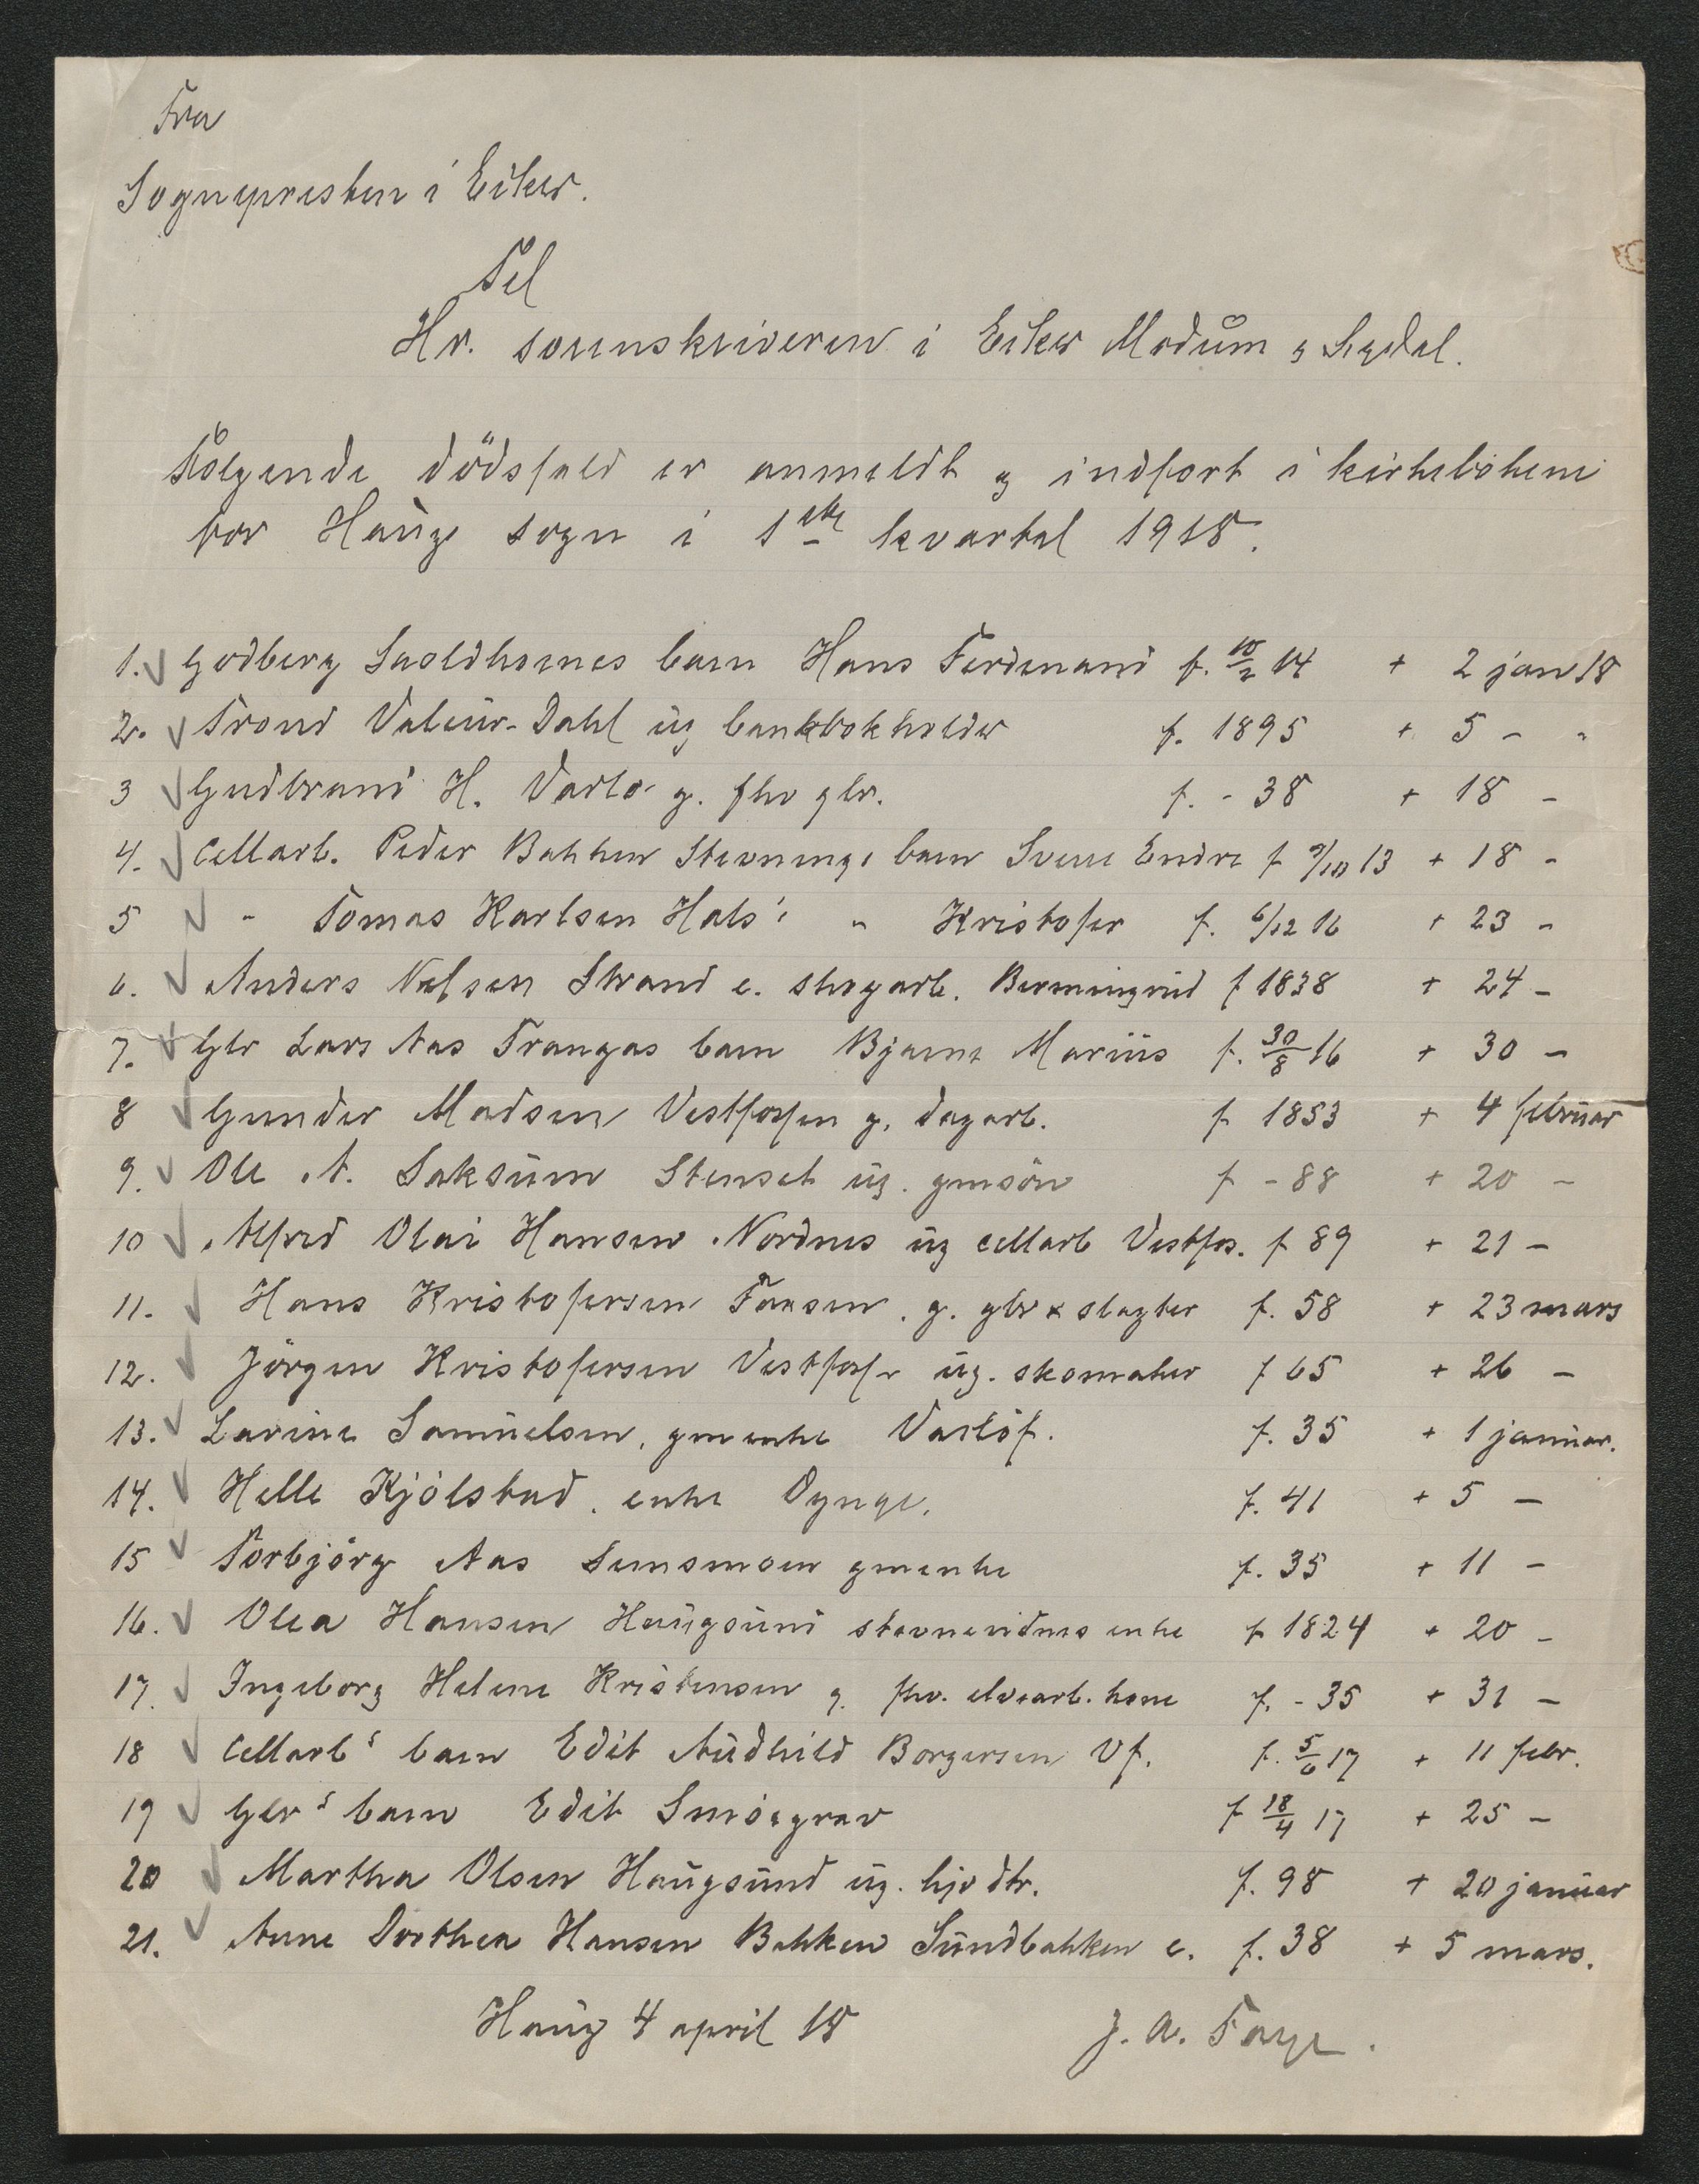 Fra
Sognepresten i Eiker.
Til
Hr. sorenskriveren i Eiker Modum & Sigdal.
Følgende dödsfald er anmeldt & indført i kirkebökene
for Haug sogn i 1ste kvartal 1918.
1. Godberg barn Hans Ferdinand f. 10/2 14 + 2 jan 18
2. Trond Valeur-Dahl ug bankbokholder f. 1895 + 5 - "
3 Gudbrand H. Varlo g. fhv gbr. f. - 38 + 18 -
4. Cellarb. Peder Bakken Stevnings barn Sverre Endre f 9/10 13 + 18 -
5 - Tomas Karlsen Hals's " Kristofer f. 6/12 16 + 23 -
6. Anders Nilsen Strand e. skogarb. f 1838 + 24 -
7. Gbr Lars Aas Trangas barn Bjarne Marius f. 30/8 16 + 30 -
8 Gunder Madsen Vestfossen g. dagarb. f 1853 + 4 februar
9. Ole A. Saksum Stenset ug. gmsön f - 88 + 20 -
10 Alfred Olai Hansen Nordnes ug cellarb Vestfos. f 89 + 21 -
11. Hans Kristofersen g. gbr & slagter f. 58 + 23 mars
12. Jörgen Kristofersen Vestfoss ug. skomaker f 65 + 26 -
13. Larine Samuelsen, gmenke Varlo f. 35 + 1 januar.
14. Helle Kjölstad. enke Dynge. f. 41 + 5 -
15 Torbjörg Aas gmenke f. 35 + 11 -
16. Olea Hansen Haugsund enke f 1824 + 20 -
17. Ingeborg Helene Kristensen g. fhv. elvearb. kone f. - 35 + 31 -
18 Cellarbs barn Edit Audhild Borgersen Vf. f. 5/6 17 + 11 febr.
19 Gbrs barn Edit Smörgrav f 18/4 17 + 25 -
20 Martha Olsen Haugsund ug. dtr. f. 98 + 20 januar
21. Anne Dorthea Hansen Bakken Sundbakken e. f. 38 + 5 mars.
Haug 4 april 18 J. A. Faye.